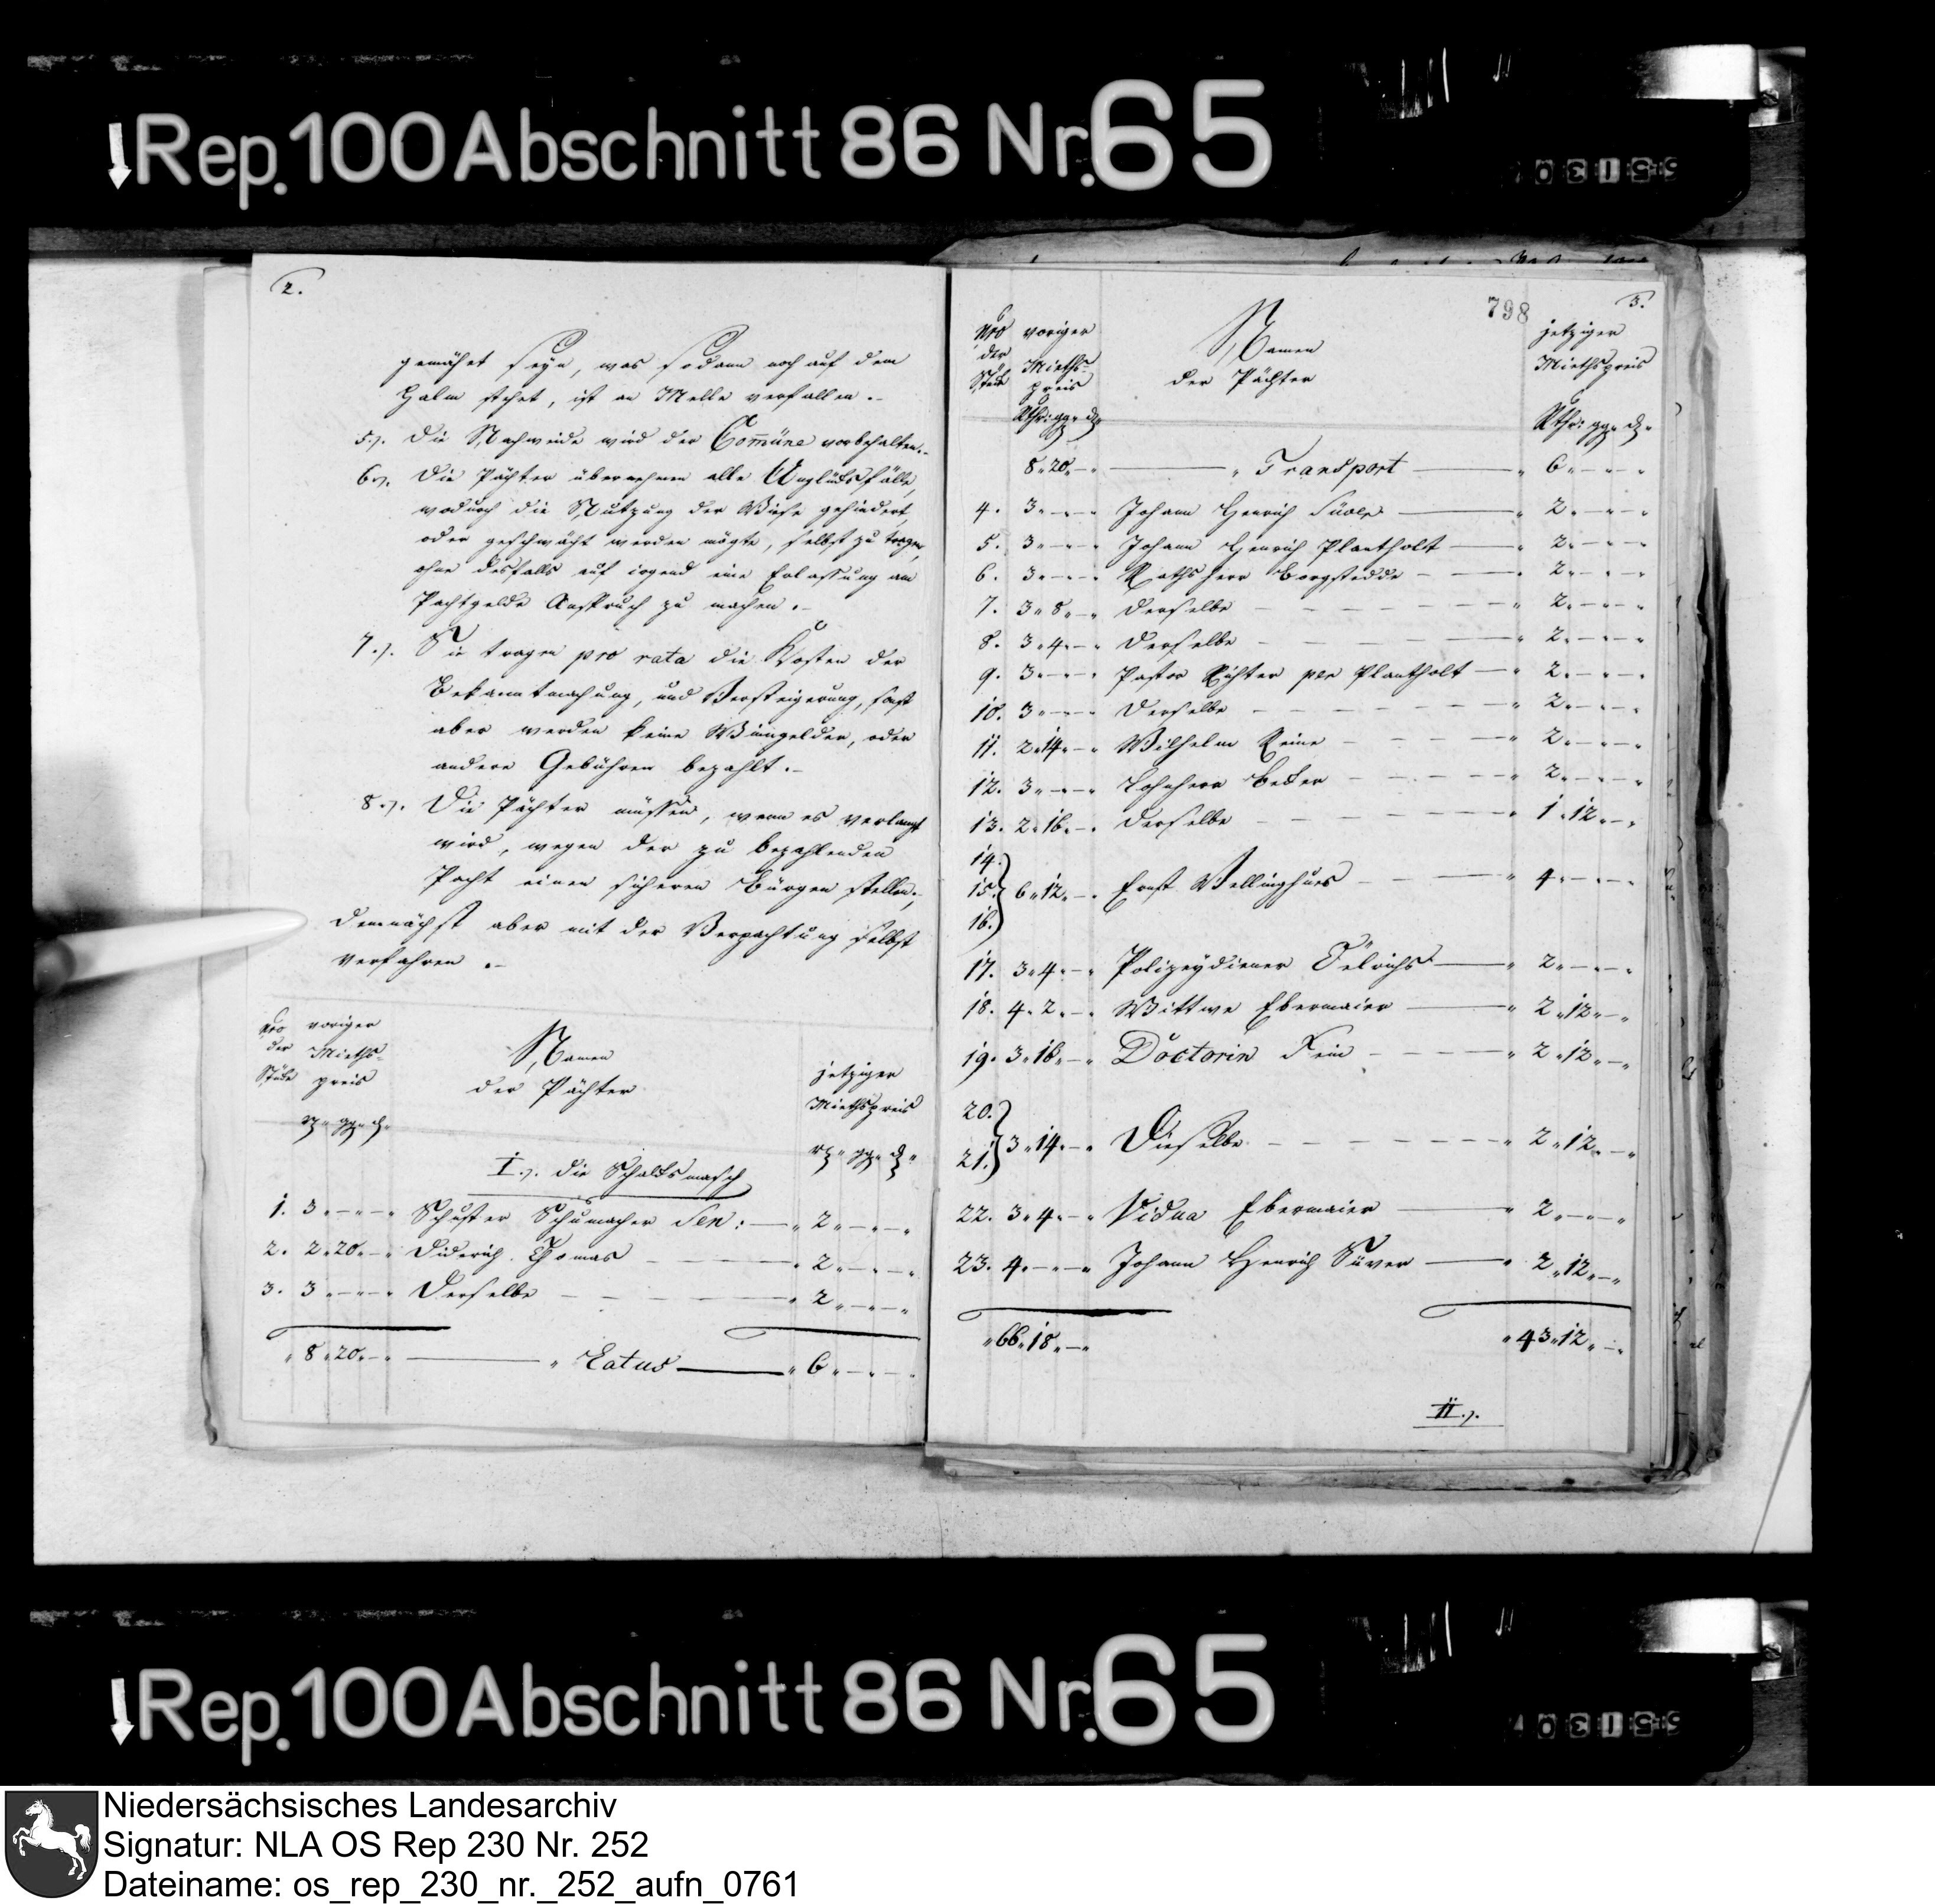 Rep. 100 Abschnitt 86 Nr. 65
2.
gemähet seyn, was sodann noch auf dem
Halm stehet, ist an Melle verfallen.-
5.). Die Nachweide wird der Comüne vorbehalten.-
6.). Die Pächter übernehmen alle Unglücksfälle,
wodurch die Nutzung der Wiese gehindert,
oder geschwächt werden mögte, selbst zu tragen,
ohne desfalls auf irgend eine Erlassung am
Pachtgelde Anspruch zu machen.-
7.). Sie tragen pro rata die Kosten der
Bekanntmachung, und Versteigerung, sonst
aber werden keine Weingelder, oder
andere Gebühren bezahlt.-
8.). Die Pächter müssen, wenn es verlangt
wird, wegen der zu bezahlenden
Pacht einen sicheren Bürgen stellen.,
demnächst aber mit der Verpachtung selbst
verfahren.-
Nro der Stücke
voriger Mieths-preis
Namen der Pächter
jetziger Miethspreis
I.). die Schaltsmasch
1. 3 „ - „ - „ Schuster Schumacher Sen: — „ 2 „ - „ - „
2. 2 „ 20 „ - „ Diderich Thomas - - - „ 2 „ - „ - „
3. 3 „ - „ - „ Derselbe - - - - „ 2 „ - „ - „
„ 8 „ 20 „ - „ — „ Latus — „ 6 „ - „ - „
798
3.
Nro der Stück
voriger Mieths-preis
Namen der Pächter
jetziger Miethspreis
Rthr: gg „ d „
Rthr: gg „ d „
8 „ 20 „ - „ — „ Transport — „ 6 „ - „ - „
4. 3 „ - „ - „ Johann Henrich — „ 2 „ - „ - „
5. 3 „ - „ - „ Johann Henrich Plantholt — „ 2 „ - „ - „
6. 3 „ - „ - „ Rathsherr Borgstedde - — „ 2 „ - „ - „
7. 3 „ 8 „ - „ Derselbe - - - „ 2 „ - „ - „
8. 3 „ 4 „ - „ Derselbe - - - „ 2 „ - „ - „
9. 3 „ - „ - „ Pastor Richter per Plantholt — „ 2 „ - „ - „
10. 3 „ - „ - „ Derselbe - - - „ 2 „ - „ - „
11. 2 „ 14 „ - „ Wilhelm Reine - - - „ 2 „ - „ - „
12. 3 „ - „ - „ Lohnherr Becker - - - „ 2 „ - „ - „
13. 2 „ 16 „ - „ Derselbe - - - „ 1 „ 12 „ - „
14.
15. } 6 „ 12 „ - „ Ernst Wellinghues - - „ 4 „ - „ - „
16.
17. 3 „ 4 „ - „ Polizeydiener Oelrichs — „ 2 „ - „ - „
18. 4 „ 2 „ - „ Wittwe Ebermaier — „ 2 „ 12 „ - „
19. 3 „ 16 „ - „ Doctorin Fein - - - „ 2 „ 12 „ - „
20.
21. } 3 „ 14 „ - „ Dieselbe - - - „ 2 „ 12 „ - „
22. 3 „ 4 „ - „ Vidua Ebermaier — „ 2 „ - „ - „
23. 4 „ - „ - „ Johann Henrich Süver — „ 2 „ 12 „ - „
„ 66 „ 18 „ - „ „ 43 „ 12 „ - „
II.).
Rep. 100 Abschnitt 86 Nr. 65
Niedersächsisches Landesarchiv
Signatur: NLA OS Rep 230 Nr. 252
Dateiname: os_rep_230_nr._252_aufn_0761